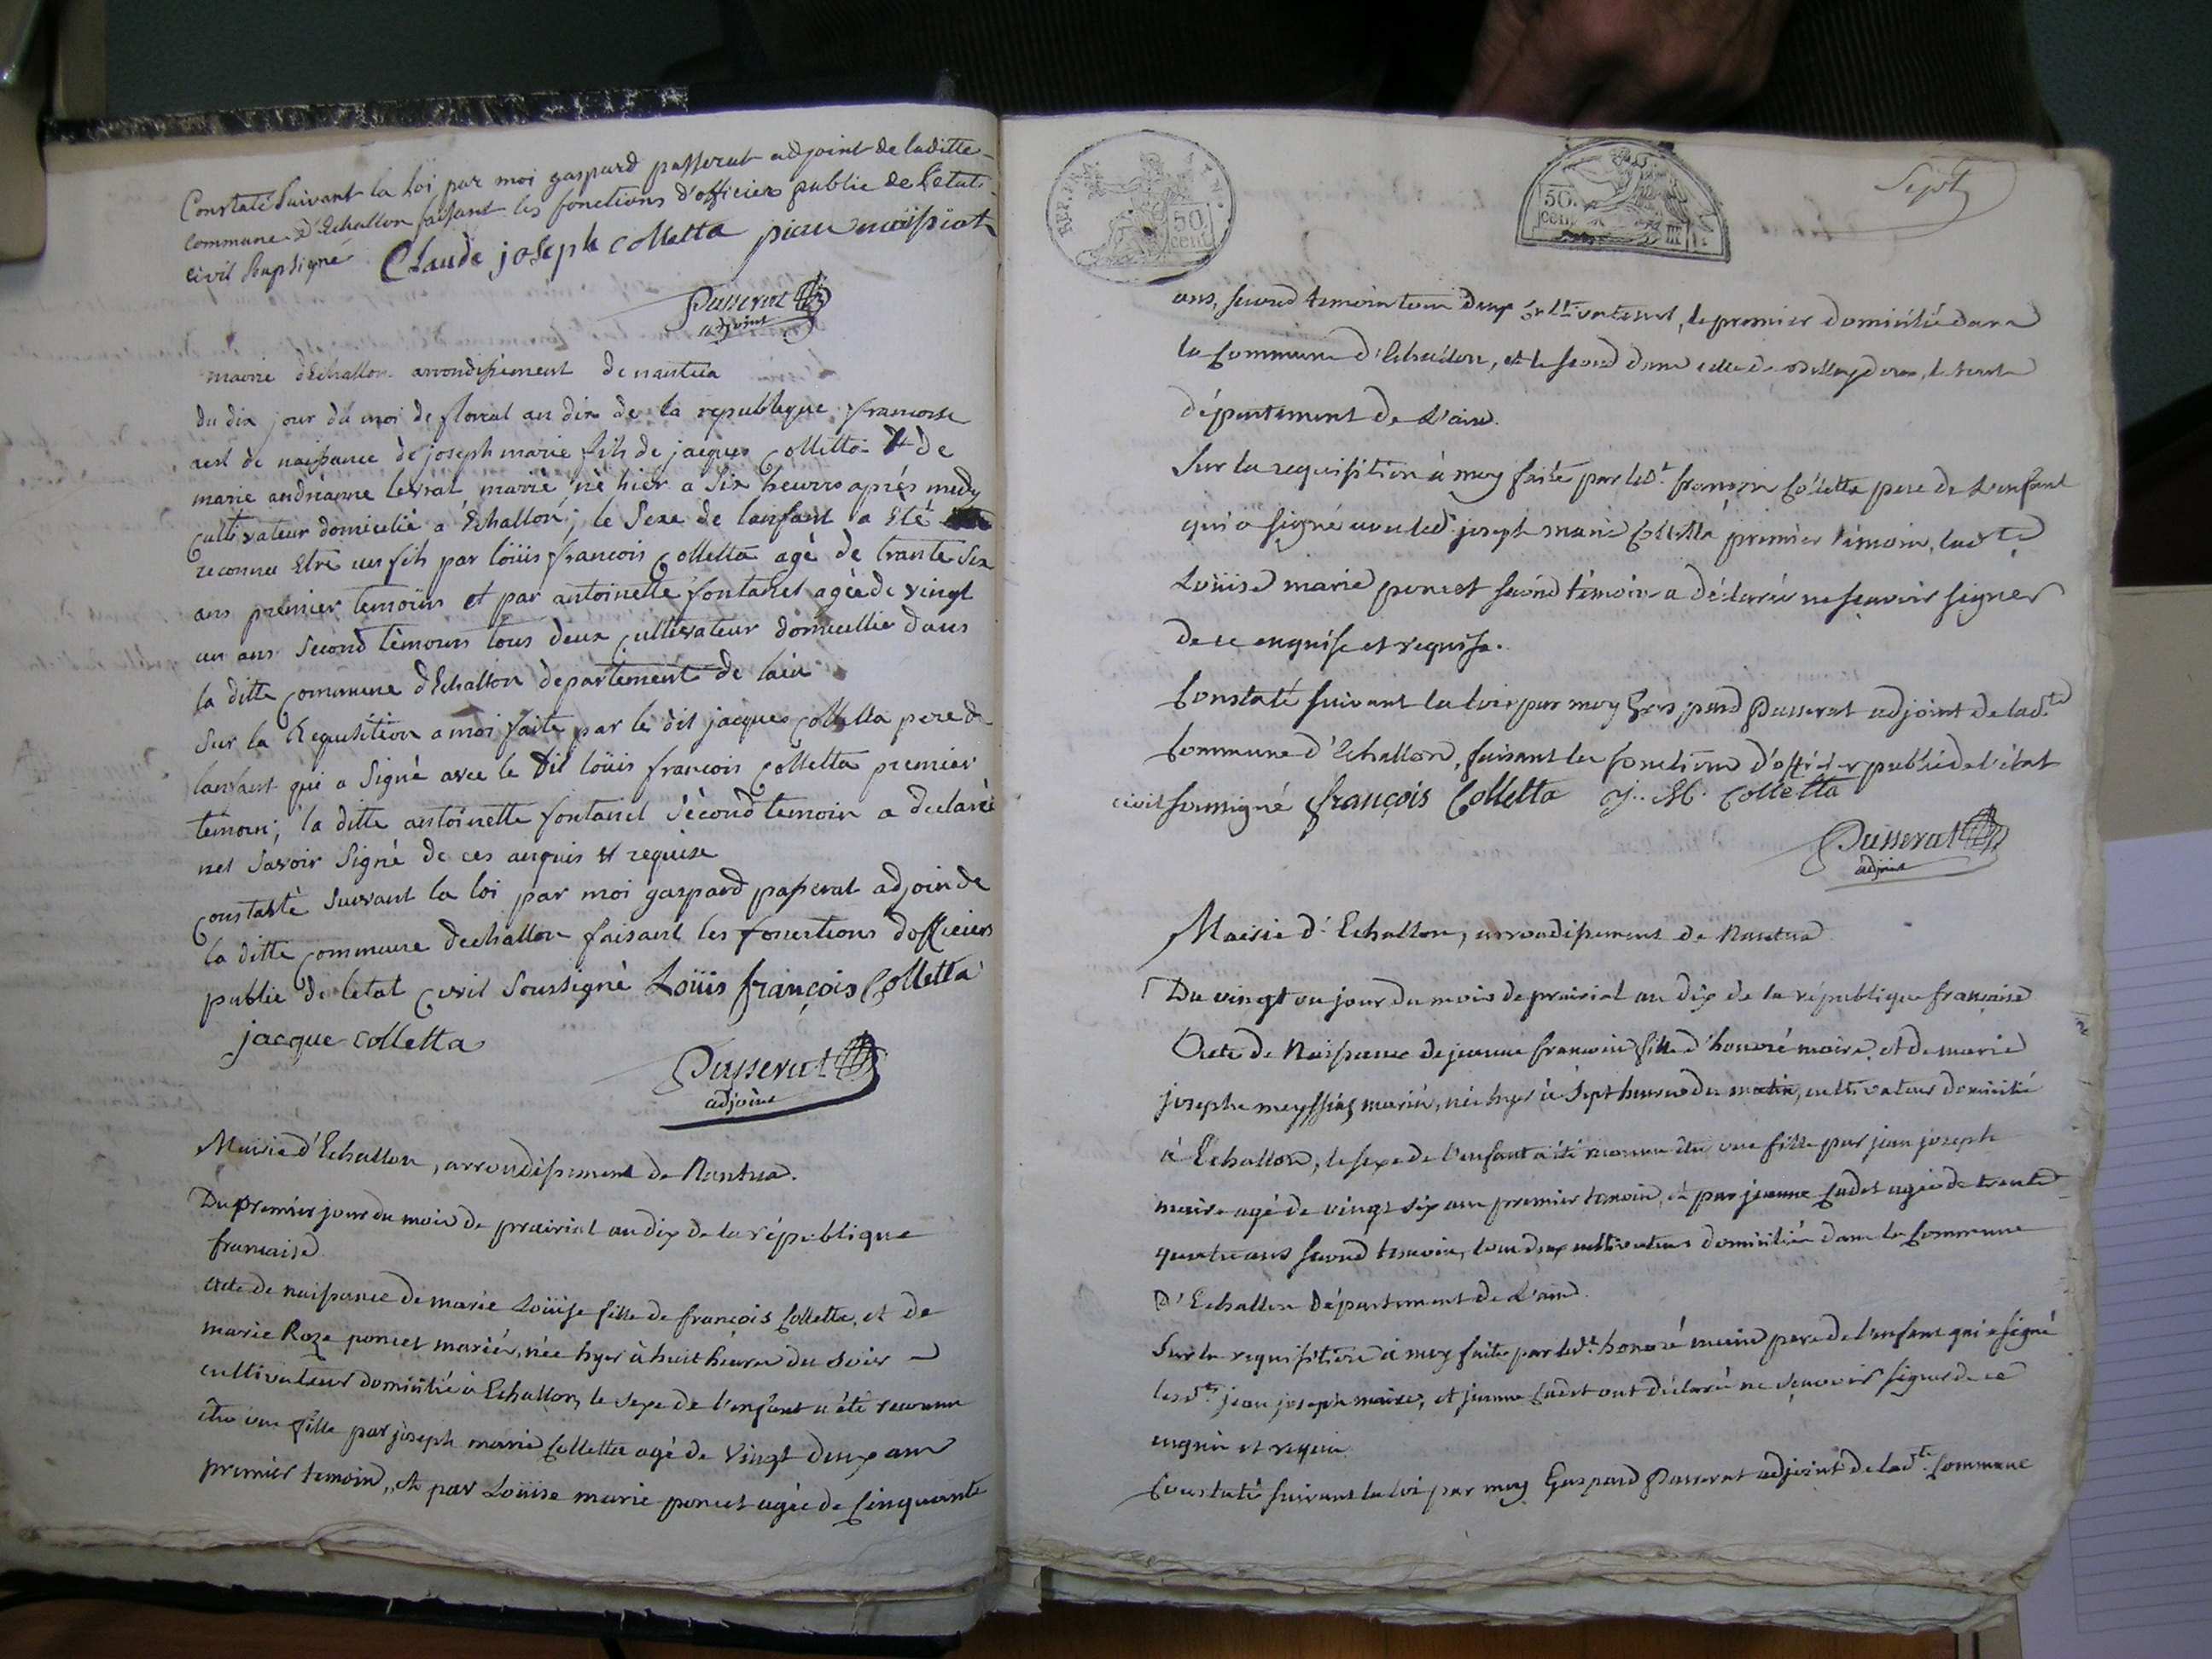 Constaté Suivant la Loi par moi gaspard passerat adjoint de laditte
Commune d'Echallon faisant les fonctions d'officiers public de l'état
civil Sousigné Claude joseph colletta
Passerat
adjoint
mairie dEchallon arrondissement de nantua
du dix jour du moi de floreal an dix de la republique francoise
act de naissance de joseph marie fils de jacques Colletta et de
marie andrianne levrat marié né hier a Six heurres aprés medy
Cultivateur domicelié a Echallon; le Sexe de lanfant a Eté
reconnu Etre un fils par loüis francois Colletta agé de trante Six
ans premier temoins et par antoinette fontanel agée de vingt
un ans Second témoins tous deux Cultivateur domicellié dans
la ditte Commune dEchallon departement de lain
Sur la Requsition a moi faite par le dit jacques Colletta pere de
lanfant qui a Signé avec le dit loüis francois Colletta premier
temoin; la ditte antoinette fontanel Sécond temoin a declaré
net Savoir Signé de ces anquis et requise
Constaté Suivant la loi par moi gaspard passerat adjoin de
la ditte Commune dechallon faisant les fonctions dofficiers
public de letat Civil Soussigné Loüis françois Colletta
jacque colletta
Passerat
adjoint
Mairie d'Echallon, arrondissement de Nantua.
Du premier jour du mois de prairial an dix de la république
francaise
Acte de naissance de marie Loüise fille de françois Colletta, et de
marie Roze poncet mariés, née hyer à huit heures du soir
cultivateur domicilié à Echallon, le sexe de l'enfant a été reconnu
être une fille par joseph marie Colletta agé de vingt deux ans
premier temoin, et par Loüise marie poncet agée de Cinquante
REP. FRA.
50
cent
50
cent
Sept
ans, second temoin tous deux cultivateurs, le premier domicilié dans
la Commune d'Echallon, et le second dans celle de
département de L'ain.
Sur la requisition à moy faite par led.t françois Colletta pere de L'enfant
qui a signé avec led.t joseph marie Colletta premier témoin, lad.te
Loüise marie poncet second témoin a déclarée ne sçavoir signer
de ce enquise et requise.
Constaté suivant la loix par moy Gaspard Passerat adjoint de lad.te
Commune d'Echallon, faisant les fonctions d'officier public de l'état
civil soussigné françois Colletta J. M. Colletta
Passerat
adjoint
Mairie d'Echallon, arrondissement de Nantua
Du vingt un jour du mois de prairial an dix de la république française
Acte de Naissance de jeanne francoise fille d'honoré maire, et de marie
josephe mariés, née hyer à Sept heures du matin, cultivateur domicilié
à Echallon, le sexe de l'enfant a été reconnu être une fille par jean joseph
maire agé de vingt six ans premier temoin, et par jeanne Cadet agée de trente
quatre ans second temoin, tous deux cultivateurs domiciliés dans la Commune
d'Echallon département de L'ain.
Sur la requisition à moy faite par led.t honoré maire pere de l'enfant qui a signé
lesd.ts jean joseph maire, et jeanne Cadet ont déclaré ne sçavoir signer de ce
enquis et requis
Constaté suivant la loi par moy Gaspard Passerat adjoint de lad.te Commune